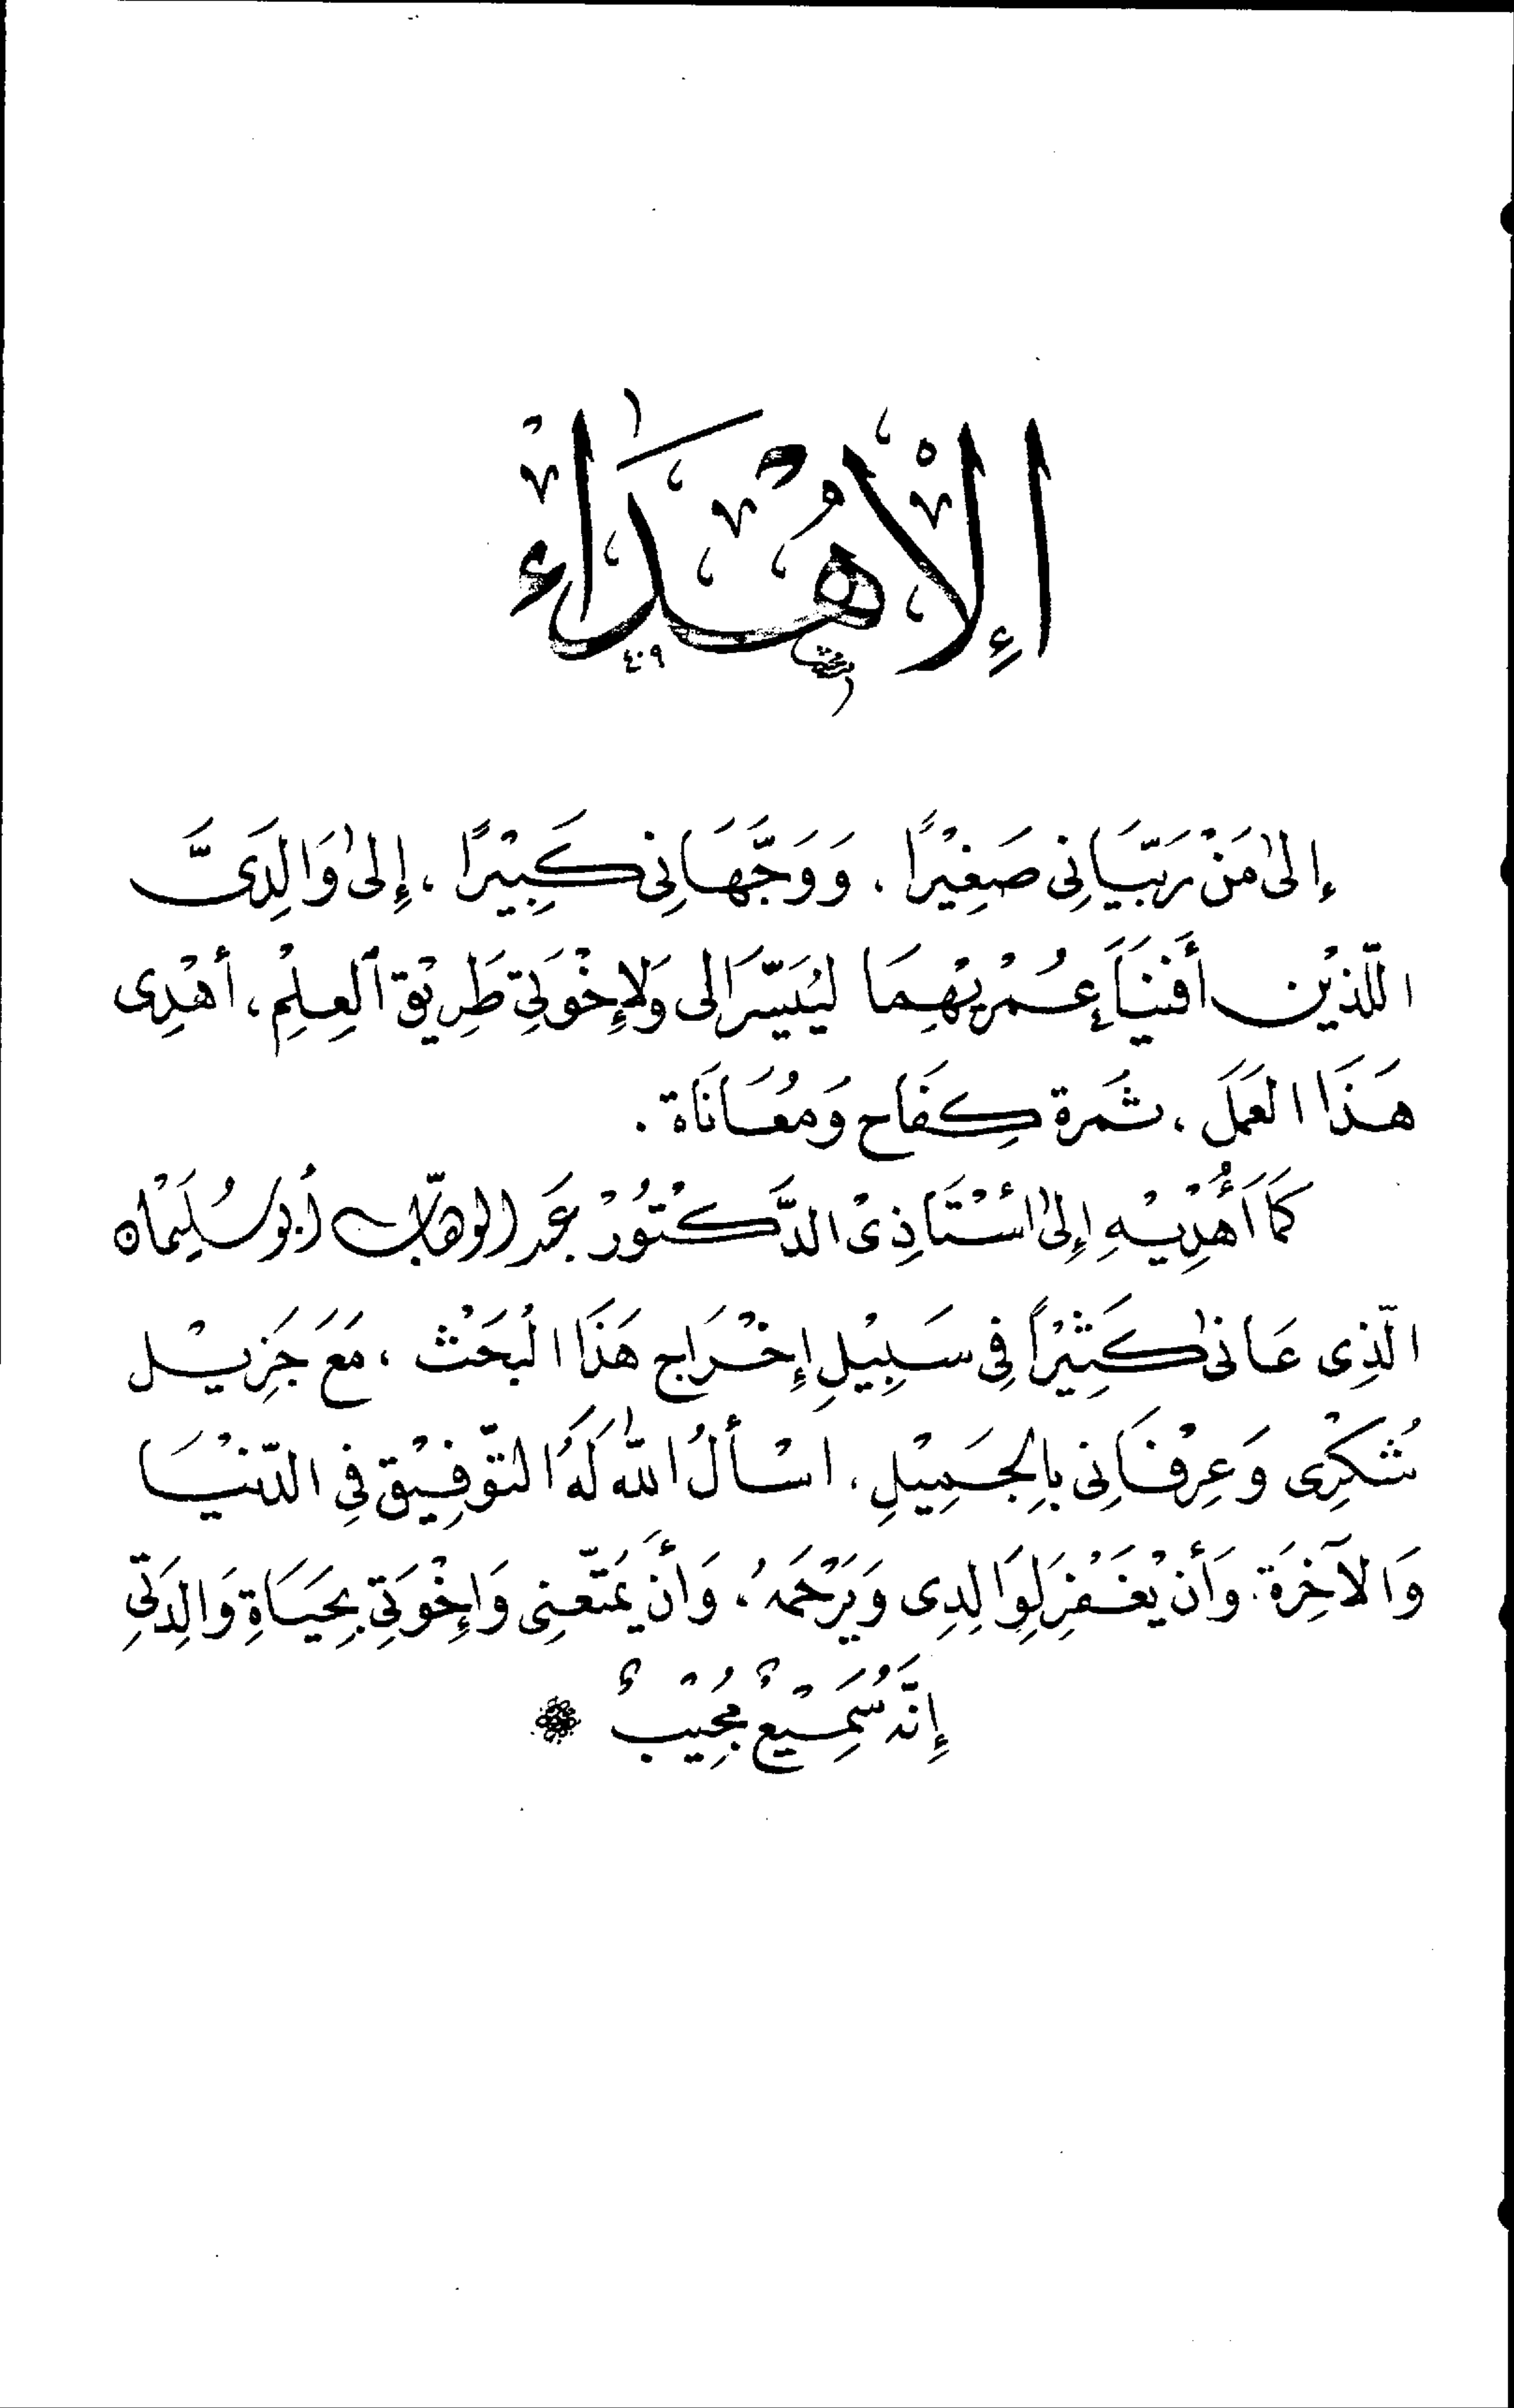 الإهْدَاء
٤٠٩
إلىٰ مَنْ رَبَّيَانِى صَغِيْرًا ، وَوَجَّهَانِى كَبِيْرًا ، إِلىٰ وَالِدَىَّ
اللّذيْن أَفْنَيَا عُمْرَيْهِمَا ليُيَسِّرَا لى وَلإِخْوَتِى طَرِيْق العِلْمِ ، أهْدِى
هَذَا العَمَلَ ، ثمَرة كِفَاح وَمُعَانَاة .
كَمَا أُهْدِيْهِ إِلىٰ اسْتَاذِىْ الدَّكْتُوْرْ عَبد الوهّاب أبو سُليْمَان
الّذِى عَانىٰ كَثِيْرًا فِى سَبِيْلِ إِخْرَاج هَذَا البَحْث ، مَعَ جَزِيْل
شُكْرِى وَعِرْفَانِى بِالجَمِيْلِ ، اسْألُ اللهَ لَهُ التوّفِيْق فِى الدّنْيَا
وَالآخِرَة . وَأن يغْفِرَ لِوَالِدِى وَيَرْحَمَهُ ، وَأنْ يُمَتّعَنِى وَإِخْوَتِى بِحَيَاةِ وَالِدَتِى
إِنَّهُ سَمِيْعٌ مُجِيْبٌ